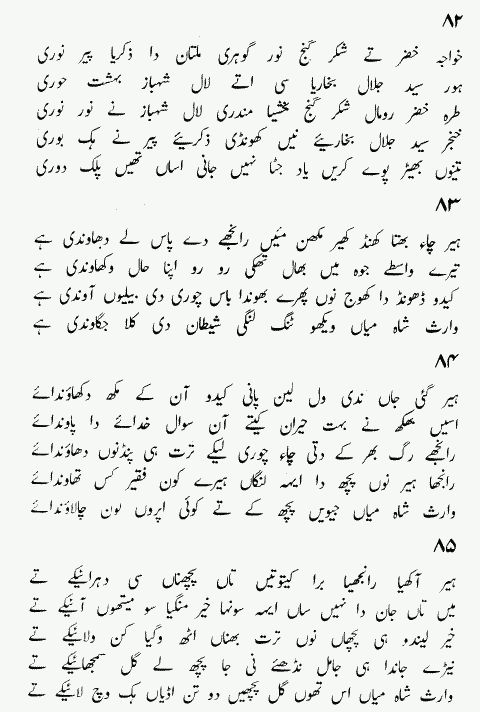 ۸۲
خواجہ خضر تے شکر گنج نور گوہری ملتان دا ذکریا پیر نوری
ہور سید جلال بخاریا سی اتے لال شہباز بہشت حوری
طرہ خضر رومال شکر گنج بخشیا مندری لال شہباز نے نور نوری
خنجر سید جلال بخاریئے نیں کھونڈی ذکریئے پیر نے ہک بوری
تینوں بھیڑ پوے کریں یاد جٹا نہیں جانی اساں تھیں پلک دوری
۸۳
ہیر چاء بھتا کھنڈ کھیر مکھن مئیں رانجھے دے پاس لے دھاوندی ہے
تیرے واسطے جوہ میں بھال تھکی رو رو اپنا حال وکھاوندی ہے
کیدو ڈھونڈ دا کھوج نوں پھرے بھوندا باس چوری دی بیلیوں آوندی ہے
وارث شاہ میاں ویکھو ٹنگ لنگی شیطان دی کلا جگاوندی ہے
۸۴
ہیر گئی جاں ندی ول لین پانی کیدو آن کے مکھ دکھاؤندائے
اسیں بھکھ نے بہت حیران کیتے آن سوال خدائے دا پاوندائے
رانجھے رگ بھر کے دتی چاء چوری لیکے ترت ہی پنڈنوں دھاؤندائے
رانجھا ہیر نوں پچھ دا ایہہ لنگاں ہیرے کون فقیر کس تھاوندائے
وارث شاہ میاں جیویں پچھ کے تے کوئی اپروں لون چالاؤندائے
۸۵
ہیر آکھیا رانجھیا برا کیتوئیں تاں پچھناں سی دہرائیکے تے
میں تاں جان دا نہیں ساں ایہہ سونہا خیر منگیا سو میتھوں آئیکے تے
خیر لیندو ہی پچھاں نوں ترت بھناں اٹھ وگیا کن ولائیکے تے
نیڑے جاندا ہی جامل نڈھئے نی جا پچھ لے گل سمجھائیکے تے
وارث شاہ میاں اس تھوں گل پچھیں دو تن اڈیاں ہک وچ لائیکے تے